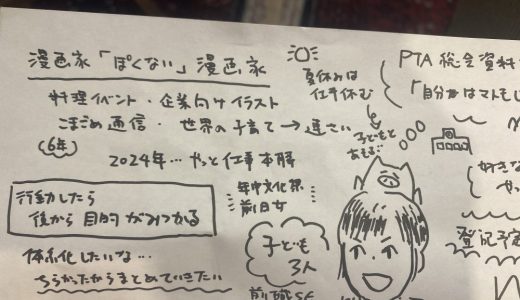 漫画家「ぽくない」漫画家
料理イベント・企業向けイラスト
こまごめ通信・世界の子育て→連さい
(6年)
2024年…やっと仕事本腰
行動したら
後から目的がみつかる
体系化したいな…
ちらかったからまとめていきたい
夏休みは
仕事休む
子どもと
あそぶ
年中文化祭
前日女
子ども
3人
前職SE
PTA総会資料
「自分がはマトモ
好きな
やっ
登記予定